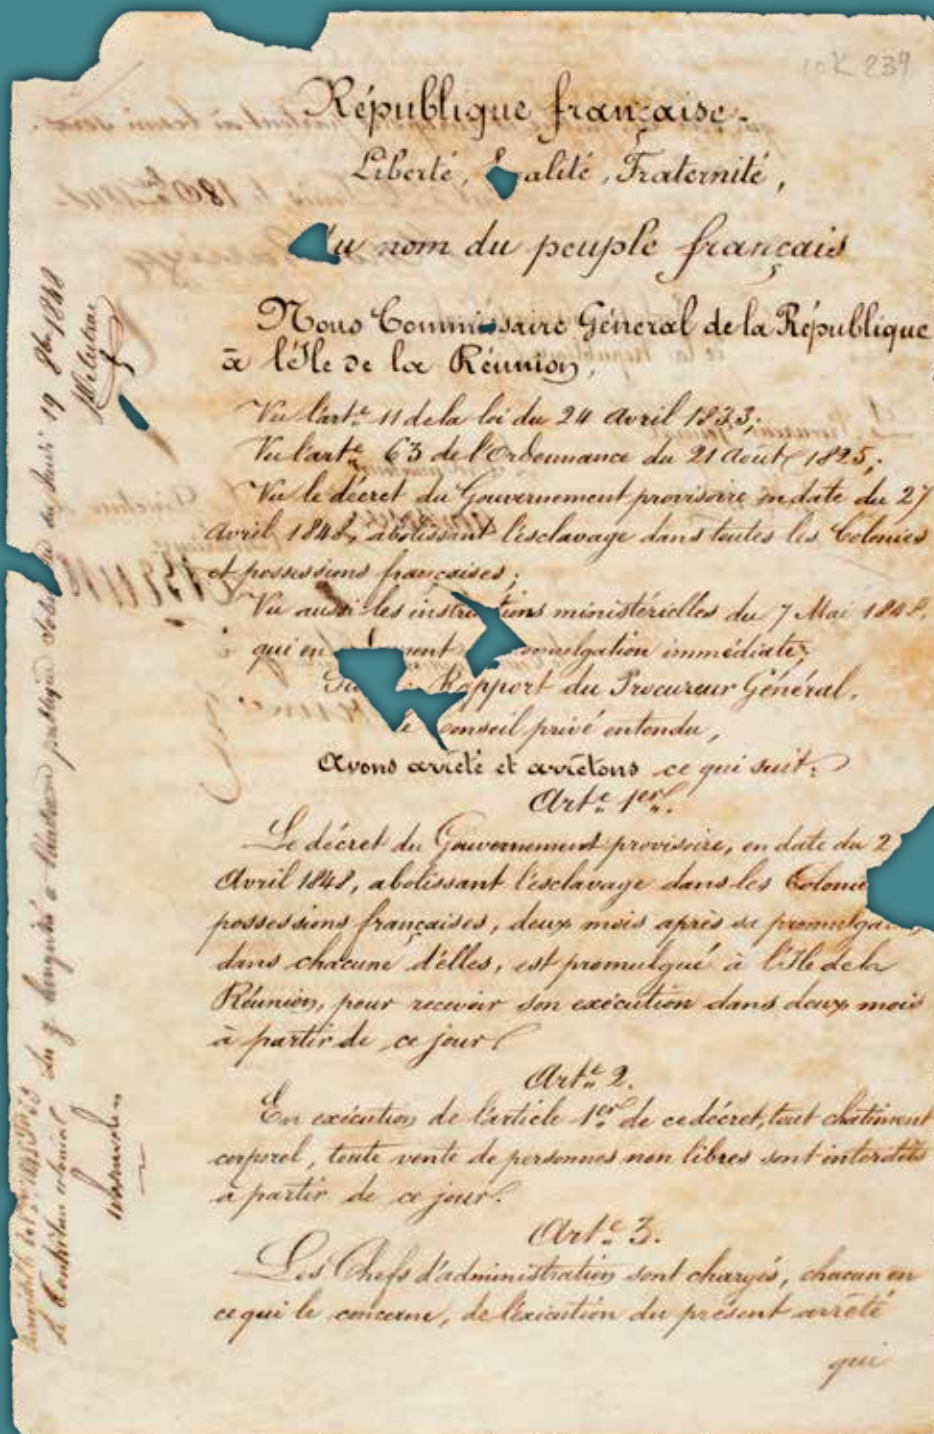 10K 239
République française.
Liberté, Égalité, Fraternité,
Au nom du peuple français
Nous Commissaire Général de la République
à l'Ile de la Réunion,
Vu l'art.e 11 de la loi du 24 Avril 1833;
Vu l'art.e 63 de l'Ordonnance du 21 Aout 1825;
Vu le décret du Gouvernement provisoire en date du 27
Avril 1848, abolissant l'esclavage dans toutes les Colonies
et possessions françaises;
Vu aussi les instructions ministérielles du 7 Mai 1848,
qui en immédiate;
Rapport du Procureur Général,
Conseil privé entendu,
Avons arrêté et arrêtons ce qui suit:
Art.e 1er.
Le décret du Gouvernement provisoire, en date du 2
Avril 1848, abolissant l'esclavage dans les Colonie
possessions françaises, deux mois après sa promulga
dans chacune d'elles, est promulgué à l'Ile de la
Réunion, pour recevoir son exécution dans deux mois
à partir de ce jour.
Art.e 2.
En exécution de l'article 1er de ce décret, tout châtiment
corporel, toute vente de personnes non libres sont interdits
à partir de ce jour.
Art.e 3.
Les Chefs d'administration sont chargés, chacun en
ce qui le concerne, de l'exécution du présent arrêté
qui
19 8bre 1848